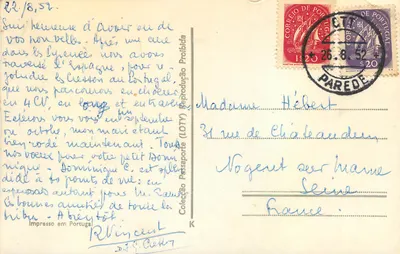 22/8, 52.
Suis heureuse d'avoir eu de
vos nouvelles. Après une cure
dans les nous avons
traversé l'Espagne, pour re-
joindre les au Portugal,
que nous parcourons en
en 4 CV, en long et en travers
vous voir en septembre
ou octobre, mon mari étant
maintenant. Tous
nos voeux pour votre petit Domi-
nique. Dominique C. est splen-
dide à points de vue: en
autant pour
les bonnes amitiés de toute la
tribu. A bientôt.
R. Vincent
Impresso em Portugal
Colecção Passaporte (LOTY) Reprodução Proíbida
K
CORREIO DE PORTUGAL
1$20
DE PORTUGAL
$20
CTT
26. 8. 52
PAREDE
Madame Hébert
31 rue de Chateaudun
Nogent sur Marne
Seine
France